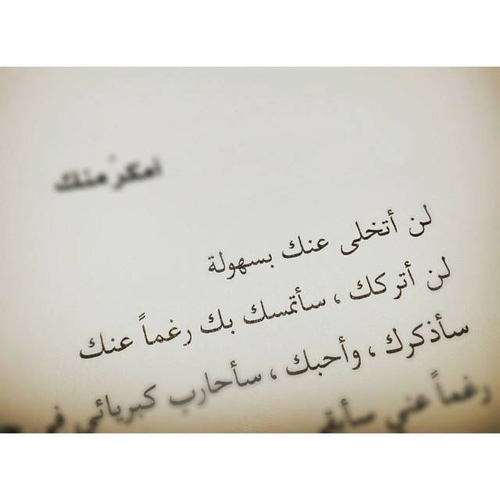 أمكر منك
لن أتخلى عنك بسهولة
لن أتركك ، سأتمسك بك رغماً عنك
سأذكرك ، وأحبك ، سأحارب كبريائي في
رغماً عني سأبقى